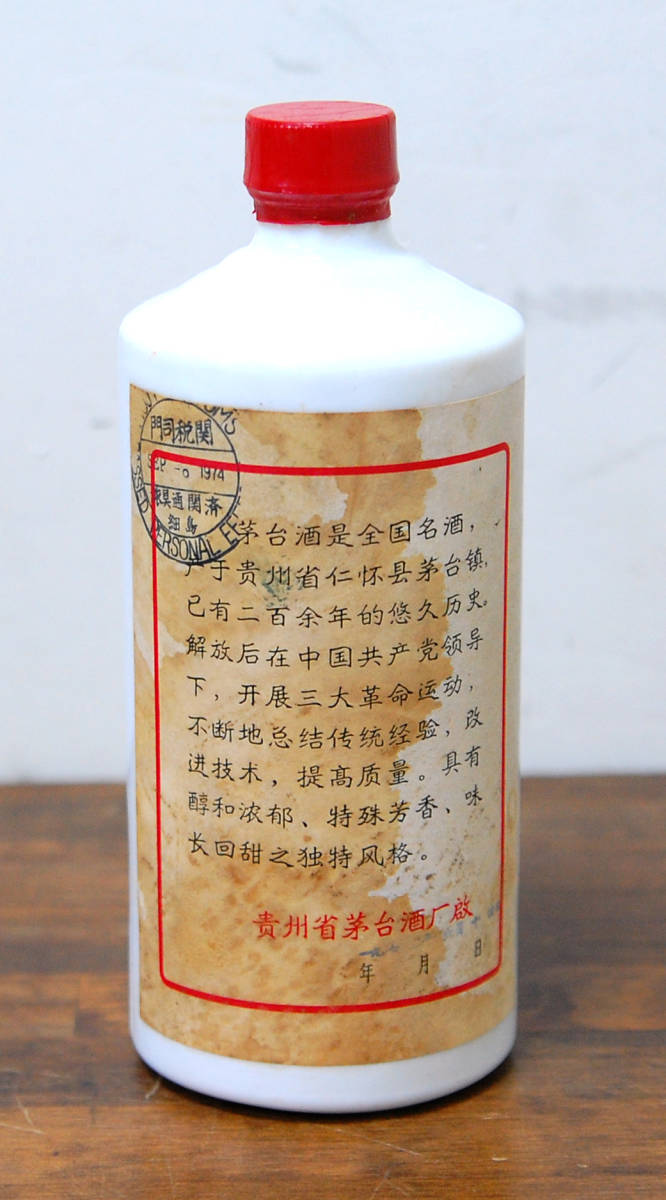 門司税関
SEP -6 1974
済関通具家
細島
PERSONAL EF
茅台酒是全国名酒，
产于贵州省仁怀县茅台镇，
已有二百余年的悠久历史。
解放后在中国共产党领导
下，开展三大革命运动，
不断地总结传统经验，改
进技术，提高质量。具有
醇和浓郁、特殊芳香、味
长回甜之独特风格。
贵州省茅台酒厂啟
年 月 日